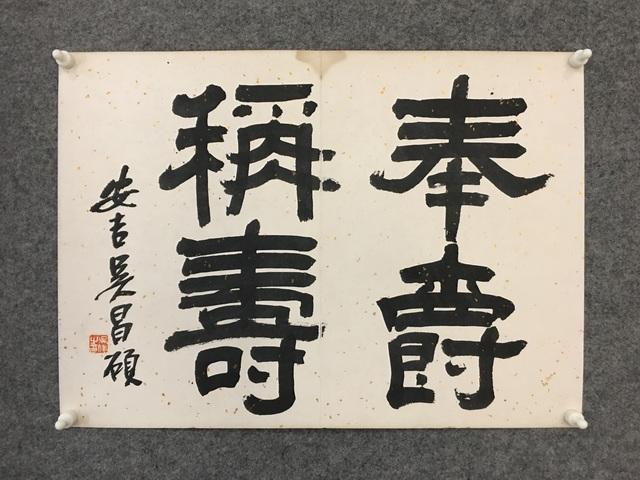 奉爵
稱壽
安吉吳昌碩